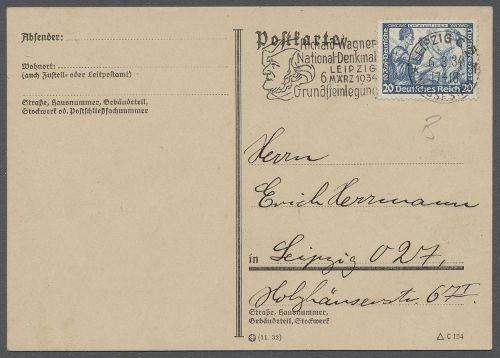 Absender:
Wohnort:
(auch Zustell- oder Leitpostamt)
Straße, Hausnummer, Gebäudeteil,
Stockwerk od. Postschließfachnummer
Postkarte
Richard Wagner
National-Denkmal
LEIPZIG
6. MÄRZ 1934
Grundsteinlegung
LEIPZIG
6.3.34
17-18
Deutsche Nothilfe
20 Deutsches Reich 20
Herrn
Erich Herrmann
in Leipzig O 27,
Holzhäuserstr. 67 I.
Straße, Hausnummer,
Gebäudeteil, Stockwerk
(11. 33)
C 154